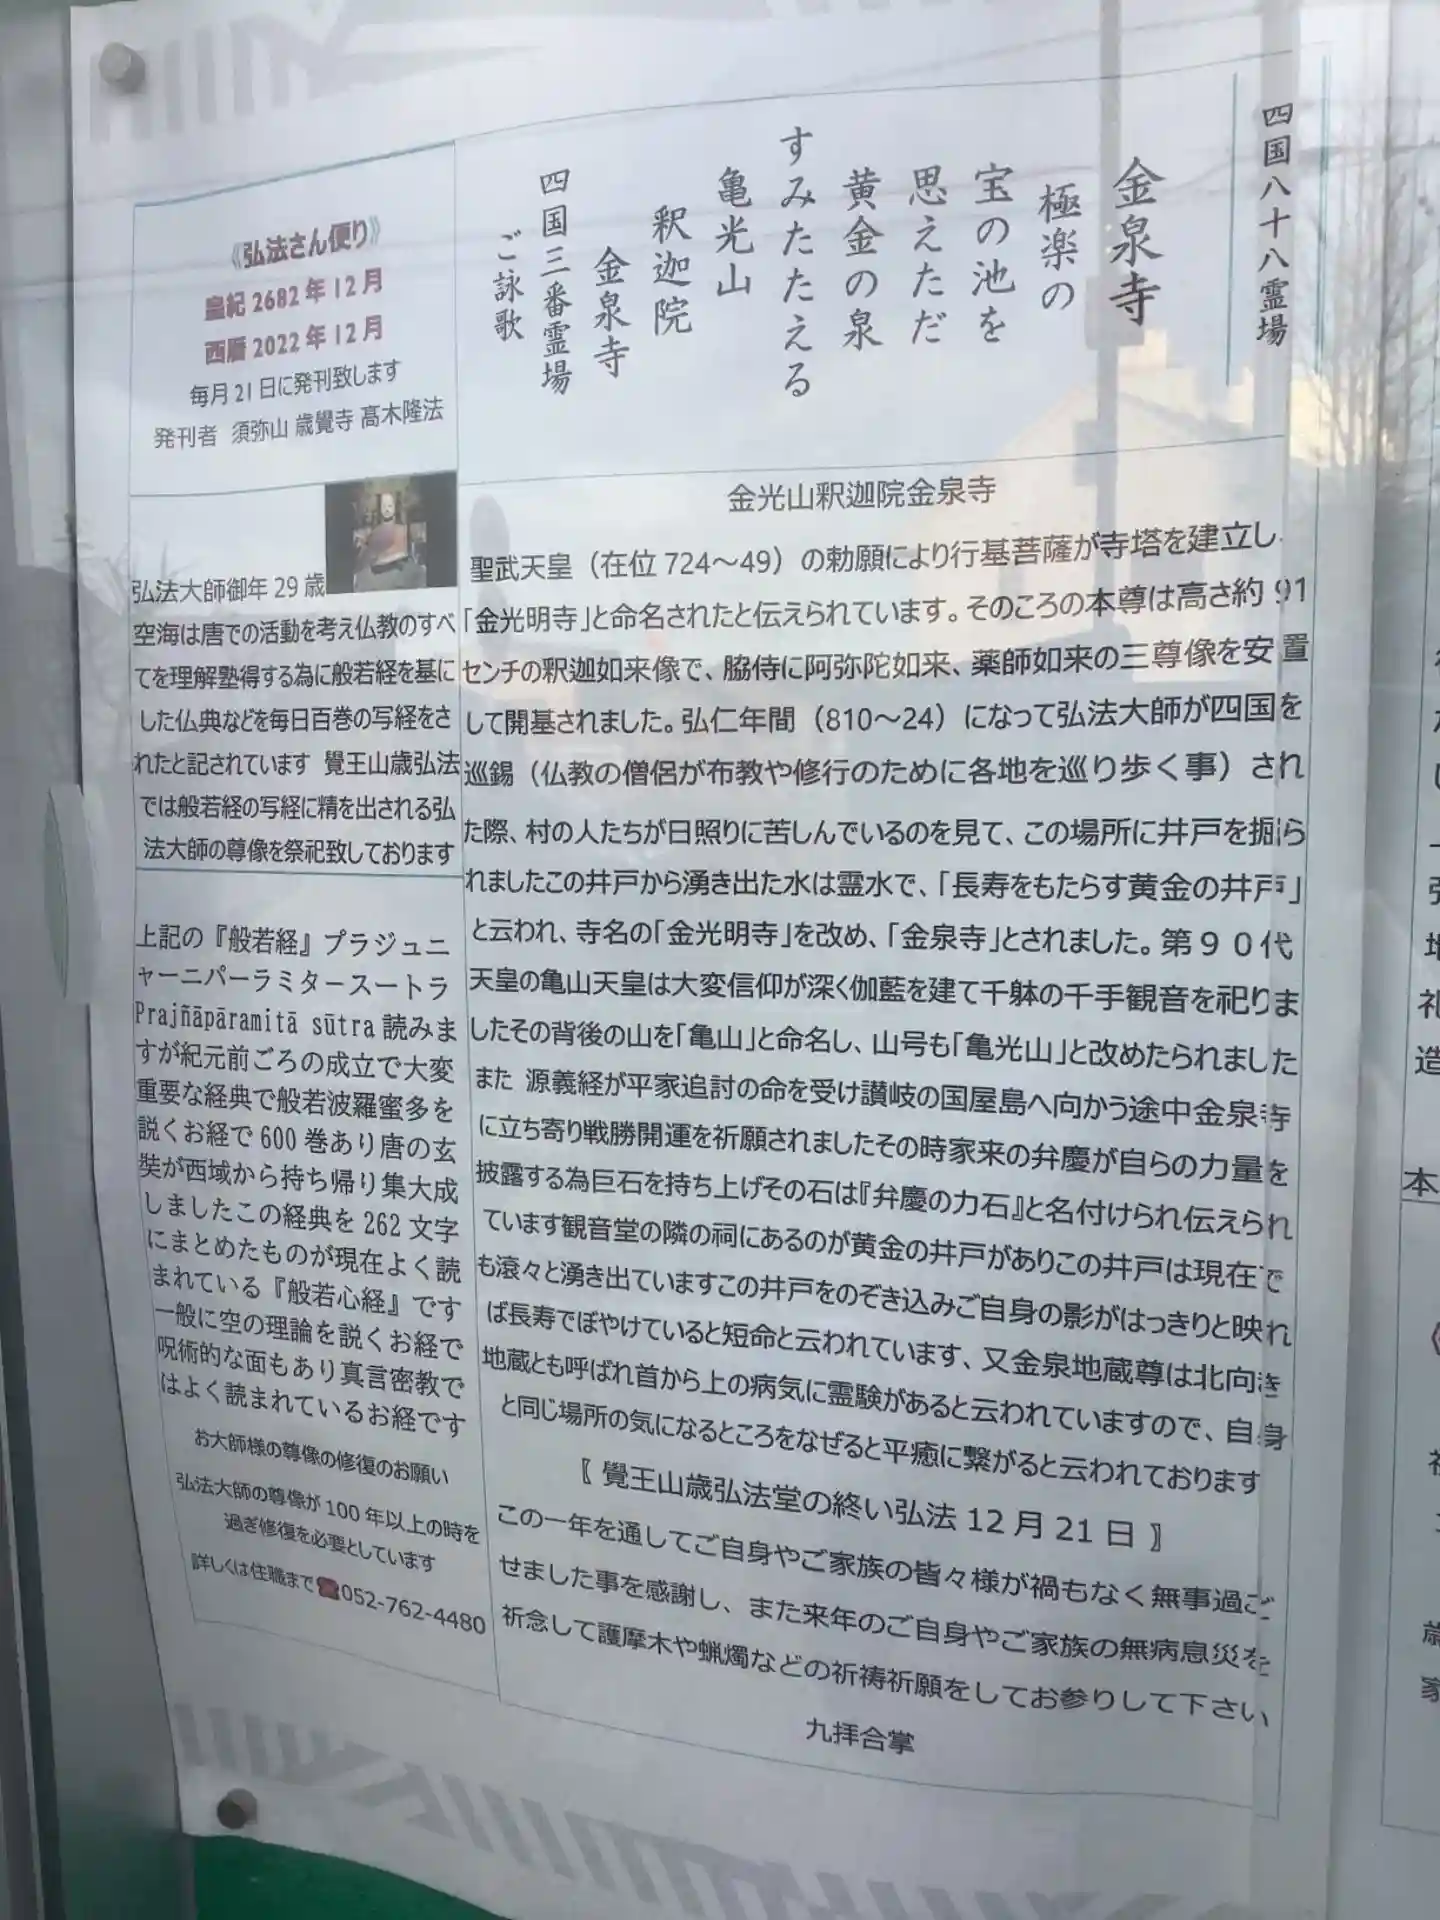 四国八十八霊場
金泉寺
極楽の
宝の池を
思えただ
黄金の泉
すみたたえる
亀光山
釈迦院
金泉寺
四国三番霊場
ご詠歌
《弘法さん便り》
皇紀2682年12月
西暦2022年12月
毎月21日に発刊致します
発刊者 須弥山 歳覺寺 髙木隆法
弘法大師御年29歳
空海は唐での活動を考え仏教のすべ
てを理解塾得する為に般若経を基に
した仏典などを毎日百巻の写経をさ
れたと記されています 覺王山歳弘法
では般若経の写経に精を出される弘
法大師の尊像を祭祀致しております
上記の『般若経』プラジュニ
ャーニパーラミタースートラ
Prajñāpāramitā sūtra読みま
すが紀元前ごろの成立で大変
重要な経典で般若波羅蜜多を
説くお経で600巻あり唐の玄
奘が西域から持ち帰り集大成
しましたこの経典を262文字
にまとめたものが現在よく読
まれている『般若心経』です
一般に空の理論を説くお経で
呪術的な面もあり真言密教で
はよく読まれているお経です
お大師様の尊像の修復のお願い
弘法大師の尊像が100年以上の時を
過ぎ修復を必要としています
詳しくは住職まで☎052-762-4480
金光山釈迦院金泉寺
聖武天皇（在位724～49）の勅願により行基菩薩が寺塔を建立し、
「金光明寺」と命名されたと伝えられています。そのころの本尊は高さ約91
センチの釈迦如来像で、脇侍に阿弥陀如来、薬師如来の三尊像を安置
して開基されました。弘仁年間（810～24）になって弘法大師が四国を
巡錫（仏教の僧侶が布教や修行のために各地を巡り歩く事）され
た際、村の人たちが日照りに苦しんでいるのを見て、この場所に井戸を掘ら
れましたこの井戸から湧き出た水は霊水で、「長寿をもたらす黄金の井戸」
と云われ、寺名の「金光明寺」を改め、「金泉寺」とされました。第９０代
天皇の亀山天皇は大変信仰が深く伽藍を建て千躰の千手観音を祀りま
したその背後の山を「亀山」と命名し、山号も「亀光山」と改めたられました
また 源義経が平家追討の命を受け讃岐の国屋島へ向かう途中金泉寺
に立ち寄り戦勝開運を祈願されましたその時家来の弁慶が自らの力量を
披露する為巨石を持ち上げその石は『弁慶の力石』と名付けられ伝えられ
ています観音堂の隣の祠にあるのが黄金の井戸がありこの井戸は現在で
も滾々と湧き出ていますこの井戸をのぞき込みご自身の影がはっきりと映れ
ば長寿でぼやけていると短命と云われています、又金泉地蔵尊は北向き
地蔵とも呼ばれ首から上の病気に霊験があると云われていますので、自身
と同じ場所の気になるところをなぜると平癒に繋がると云われております
〖覺王山歳弘法堂の終い弘法12月21日〗
この一年を通してご自身やご家族の皆々様が禍もなく無事過ご
せました事を感謝し、また来年のご自身やご家族の無病息災を
祈念して護摩木や蝋燭などの祈祷祈願をしてお参りして下さい
九拝合掌